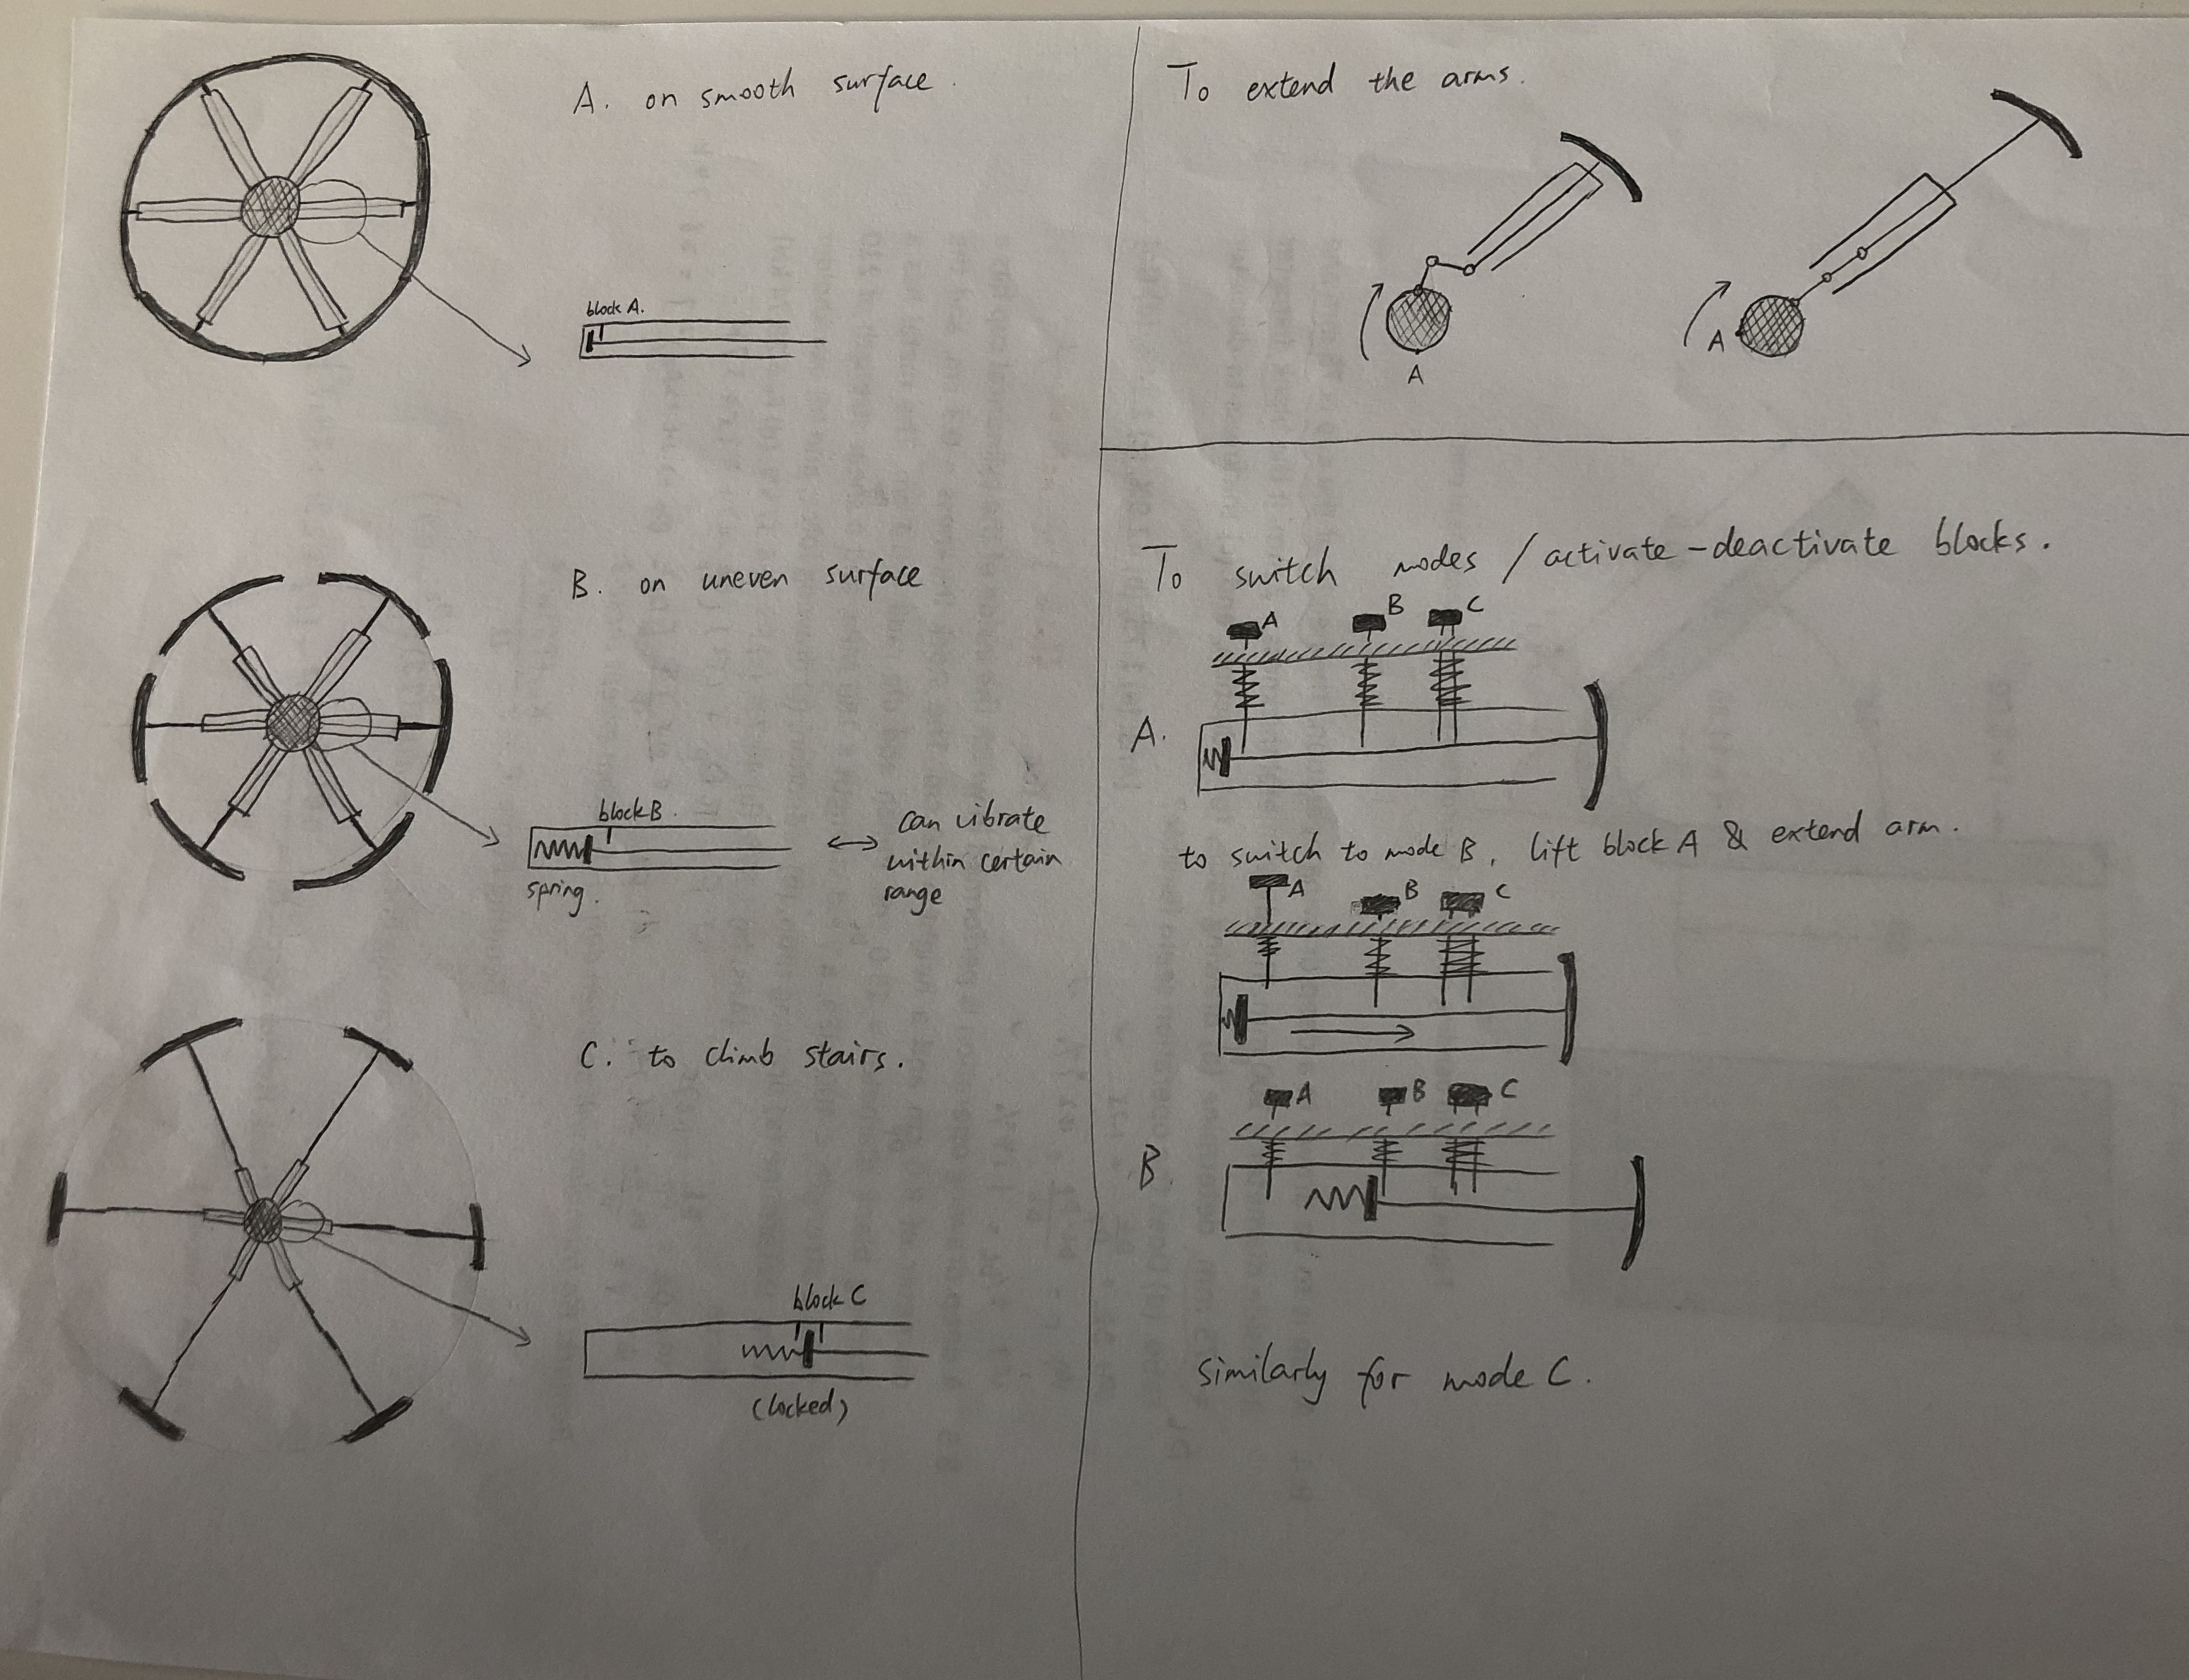 A. on smooth surface.
block A.
B. on uneven surface
block B.
spring.
can vibrate
within certain
range
C. to climb stairs.
block C
(locked)
To extend the arms.
A
A
To switch modes / activate-deactivate blocks.
A B C
A.
to switch to mode B, lift block A & extend arm.
A B C
A B C
B
similarly for mode C.